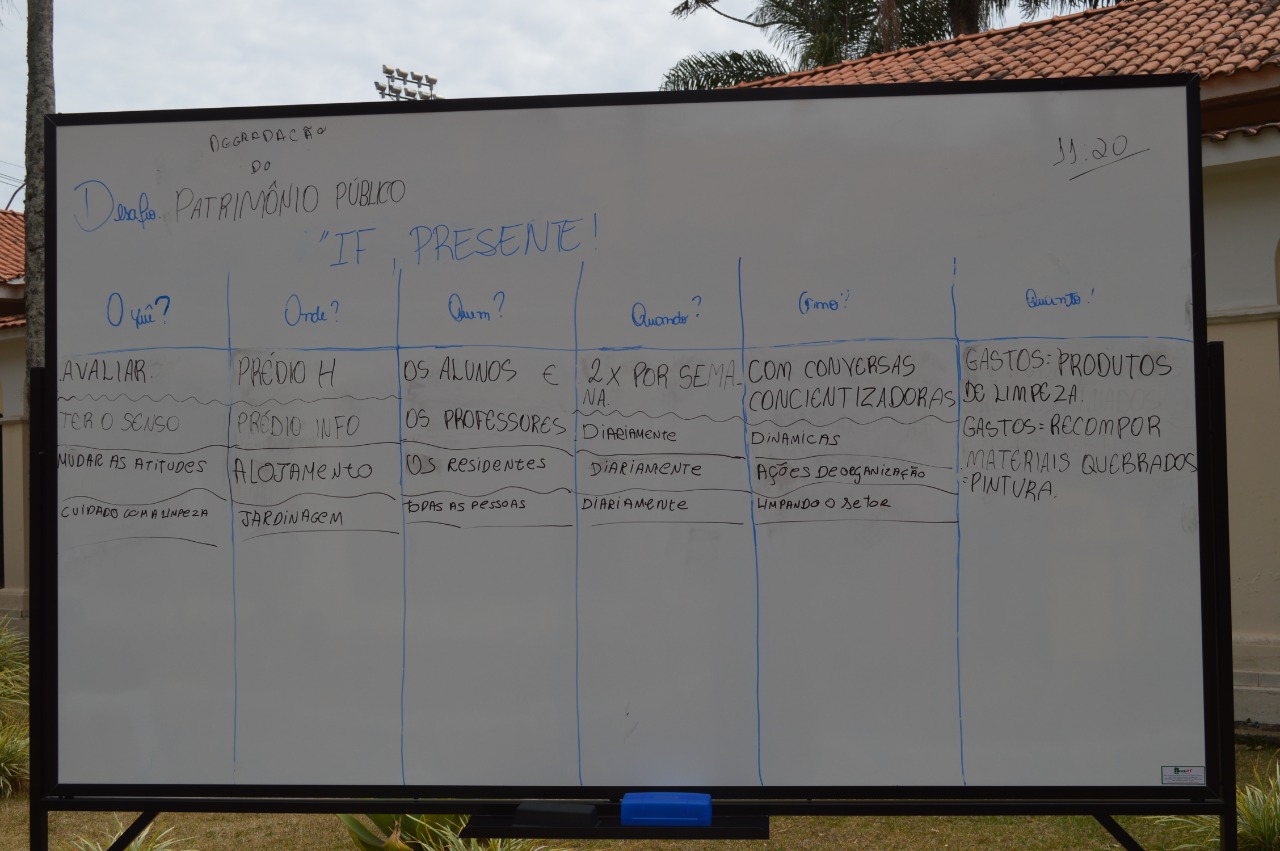 DEGRADAÇÃO
DO
Desafio. PATRIMÔNIO PÚBLICO
11:20
"IF, PRESENTE!
O quê? Onde? Quem? Quando? Como? Quanto?
AVALIAR. PRÉDIO H OS ALUNOS E 2 X POR SEMA- COM CONVERSAS GASTOS: PRODUTOS
NA. CONCIENTIZADORAS DE LIMPEZA.
TER O SENSO PRÉDIO INFO OS PROFESSORES DIARIAMENTE DINAMICAS GASTOS= RECOMPOR
MUDAR AS ATITUDES ALOJAMENTO OS RESIDENTES DIARIAMENTE AÇÕES DE ORGANIZAÇÃO MATERIAIS QUEBRADOS
=PINTURA.
CUIDADO COM A LIMPEZA JARDINAGEM TODAS AS PESSOAS DIARIAMENTE LIMPANDO O SETOR